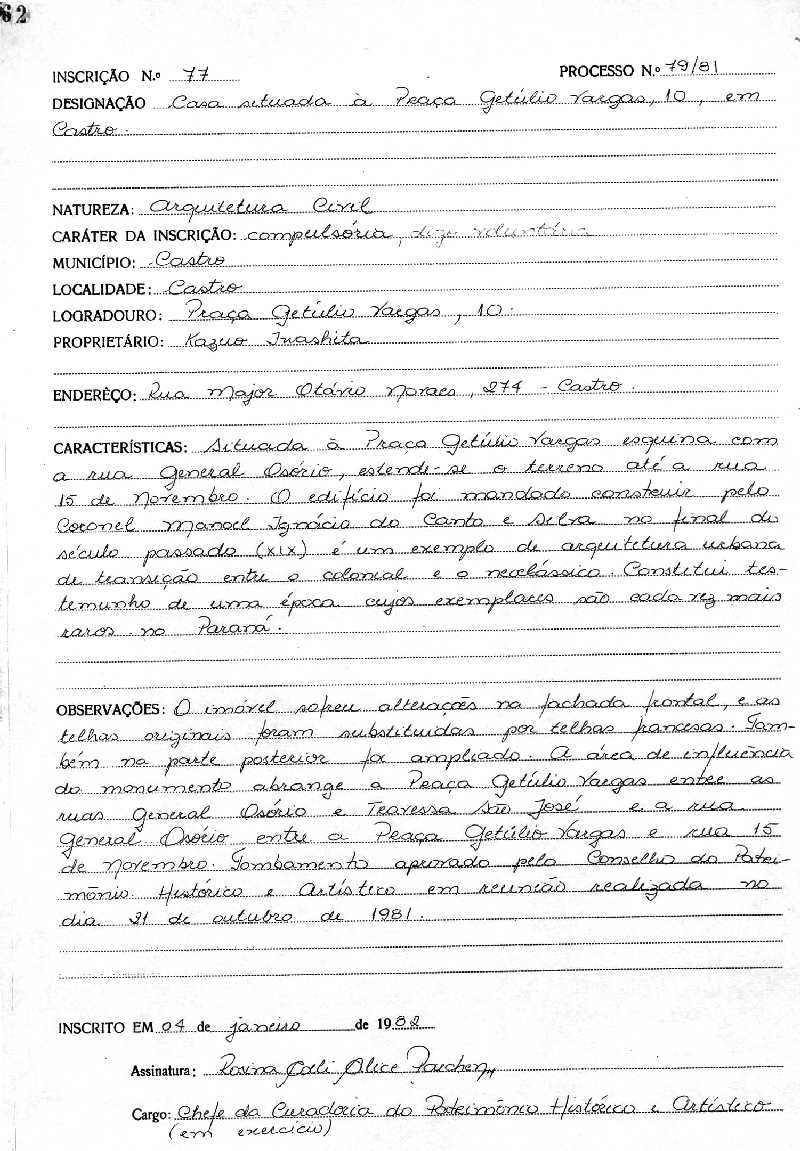 62
INSCRIÇÃO N.º 77 PROCESSO N.º 79/81
DESIGNAÇÃO Casa situada à Praça Getúlio Vargas, 10, em
Castro.
NATUREZA: Arquitetura Civil
CARÁTER DA INSCRIÇÃO: compulsória, digo voluntária
MUNICÍPIO: Castro
LOCALIDADE: Castro
LOGRADOURO: Praça Getúlio Vargas, 10.
PROPRIETÁRIO: Kazuo Inashita
ENDERÊÇO: Rua Major Otávio Novaes, 274 - Castro.
CARACTERÍSTICAS: Situada à Praça Getúlio Vargas esquina com
a rua General Osório, estende-se o terreno até a rua
15 de Novembro. O edifício foi mandado construir pelo
Coronel Manoel Ignácio do Canto e Silva no final do
século passado (XIX) é um exemplo de arquitetura urbana
de transição entre o colonial e o neoclássico. Constitui tes-
temunho de uma época cujos exemplares são cada vez mais
raros no Paraná.
OBSERVAÇÕES: O imóvel sofreu alterações na fachada frontal, e as
telhas originais foram substituidas por telhas francesas. Tam-
bém na parte posterior foi ampliado. A área de influência
do monumento abrange a Praça Getúlio Vargas entre as
ruas General Osório e Travessa São José e a rua
General Osório entre a Praça Getúlio Vargas e rua 15
de Novembro. Tombamento aprovado pelo Conselho do Patri-
mônio Histórico e Artístico em reunião realizada no
dia 21 de outubro de 1981.
INSCRITO EM 04 de janeiro de 1982
Assinatura: Rosina Alice Parchen
Cargo: Chefe da Curadoria do Patrimônio Histórico e Artístico
(em exercício)